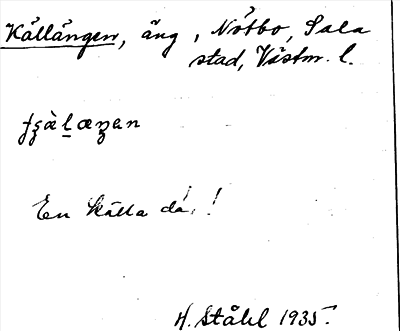 Källängen, äng, Nötbo, Sala
stad, Västm. l.
En källa där!
H. Ståhl 1935.